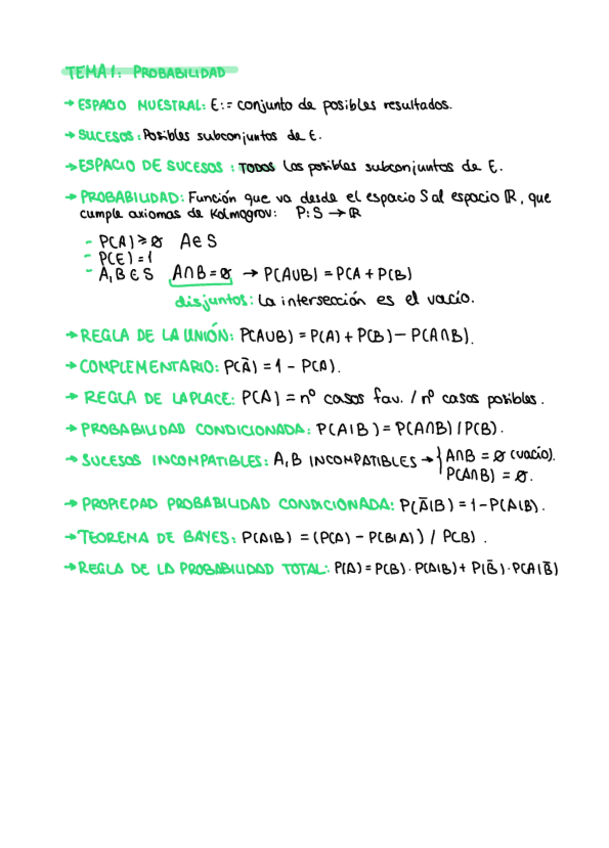 TEMA 1: PROBABILIDAD
→ ESPACIO MUESTRAL: E:= conjunto de posibles resultados.
→ SUCESOS: Posibles subconjuntos de E.
→ ESPACIO DE SUCESOS: TODOS los posibles subconjuntos de E.
→ PROBABILIDAD: Función que va desde el espacio S al espacio ℝ, que
cumple axiomas de Kolmogrov: P: S → ℝ
- P(A) ≥ 0 A ∈ S
- P(E) = 1
- A, B ∈ S A∩B = ∅ → P(A∪B) = P(A + P(B)
disjuntos: La intersección es el vacío.
→ REGLA DE LA UNIÓN: P(A∪B) = P(A) + P(B) − P(A∩B).
→ COMPLEMENTARIO: P(Ā) = 1 - P(A).
→ REGLA DE LAPLACE: P(A) = nº casos fav. / nº casos posibles.
→ PROBABILIDAD CONDICIONADA: P(A|B) = P(A∩B) / P(B).
→ SUCESOS INCOMPATIBLES: A, B INCOMPATIBLES → { A∩B = ∅ (vacío).
P(A∩B) = ∅.
→ PROPIEDAD PROBABILIDAD CONDICIONADA: P(Ā|B) = 1 - P(A|B).
→ TEOREMA DE BAYES: P(A|B) = (P(A) - P(B|A)) / P(B).
→ REGLA DE LA PROBABILIDAD TOTAL: P(A) = P(B) · P(A|B) + P(B̄) · P(A|B̄)